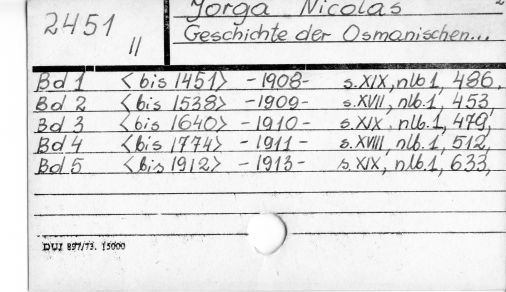 Jorga Nicolas
2451
II
Geschichte der Osmanischen...
Bd 1 <bis 1451> -1908- s.XIX, nlb1, 486,
Bd 2 <bis 1538> -1909- s.XVII, nlb1, 453,
Bd 3 <bis 1640> -1910- s.XIX, nlb.1, 479,
Bd 4 <bis 1774> -1911- s.XVIII, nlb.1, 512,
Bd 5 <bis 1912> -1913- s.XIX, nlb.1, 633,
DUI 897/73. 15000